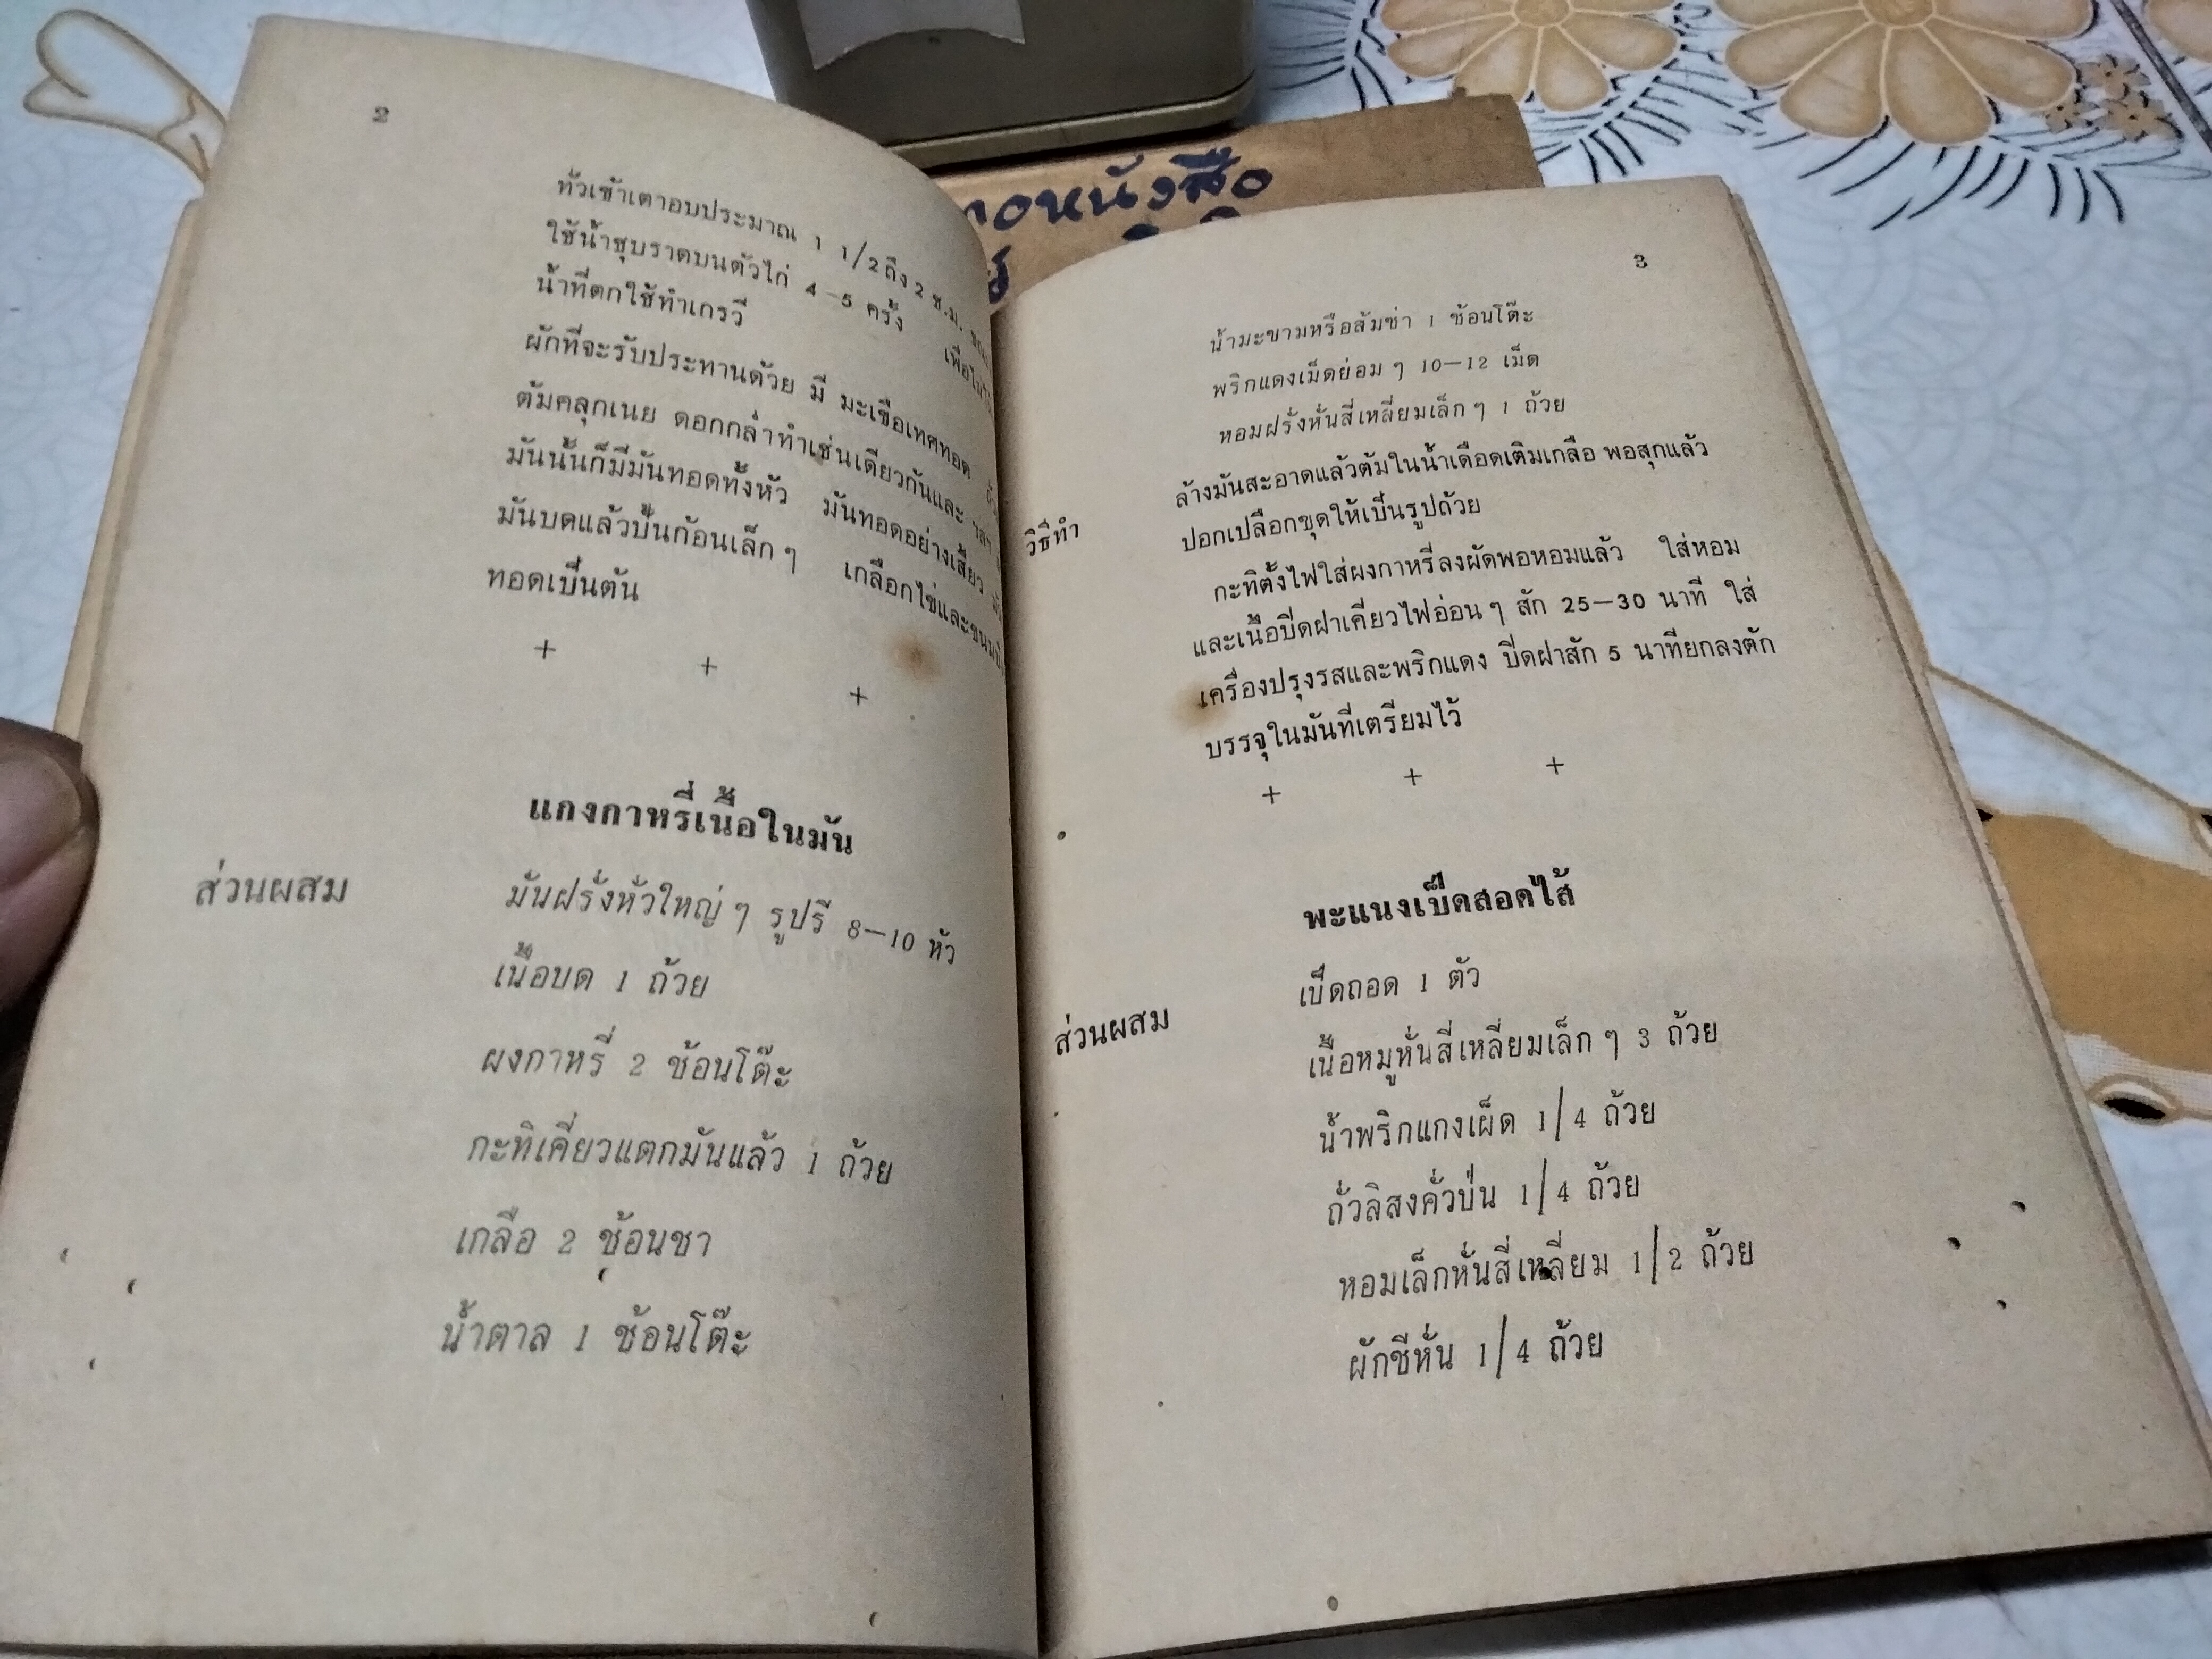 2
ทั่วเข้าเตาอบประมาณ 1 1/2 ถึง 2 ช.ม.
ใช้น้ำซุบราดบนตัวไก่ 4-5 ครั้ง เพื่อไม่ให้
น้ำที่ตกใช้ทำเกรวี
ผักที่จะรับประทานด้วย มี มะเขือเทศทอด
ต้มคลุกเนย ดอกกล่ำทำเช่นเดียวกันและ
มันนั้นก็มีมันทอดทั้งหัว มันทอดอย่างเสี้ยว
มันบดแล้วปั้นก้อนเล็ก ๆ เกลือกไข่และขนมปัง
ทอดเป็นต้น
+ + +
แกงกาหรี่เนื้อในมัน
ส่วนผสม มันฝรั่งหัวใหญ่ ๆ รูปรี 8—10 หัว
เนื้อบด 1 ถ้วย
ผงกาหรี่ 2 ช้อนโต๊ะ
กะทิเคี่ยวแตกมันแล้ว 1 ถ้วย
เกลือ 2 ช้อนชา
น้ำตาล 1 ช้อนโต๊ะ
หนังสือ
3
น้ำมะขามหรือส้มซ่า 1 ช้อนโต๊ะ
พริกแดงเม็ดย่อม ๆ 10—12 เม็ด
หอมฝรั่งหั่นสี่เหลี่ยมเล็ก ๆ 1 ถ้วย
วิธีทำ ล้างมันสะอาดแล้วต้มในน้ำเดือดเติมเกลือ พอสุกแล้ว
ปอกเปลือกขุดให้เป็นรูปถ้วย
กะทิตั้งไฟใส่ผงกาหรี่ลงผัดพอหอมแล้ว ใส่หอม
และเนื้อปิดฝาเคี่ยวไฟอ่อน ๆ สัก 25—30 นาที ใส่
เครื่องปรุงรสและพริกแดง ปิดฝาสัก 5 นาทียกลงตัก
บรรจุในมันที่เตรียมไว้
+ + +
พะแนงเป็ดสอดไส้
ส่วนผสม เป็ดถอด 1 ตัว
เนื้อหมูหั่นสี่เหลี่ยมเล็ก ๆ 3 ถ้วย
น้ำพริกแกงเผ็ด 1/4 ถ้วย
ถั่วลิสงคั่วป่น 1/4 ถ้วย
หอมเล็กหั่นสี่เหลี่ยม 1/2 ถ้วย
ผักชีหั่น 1/4 ถ้วย